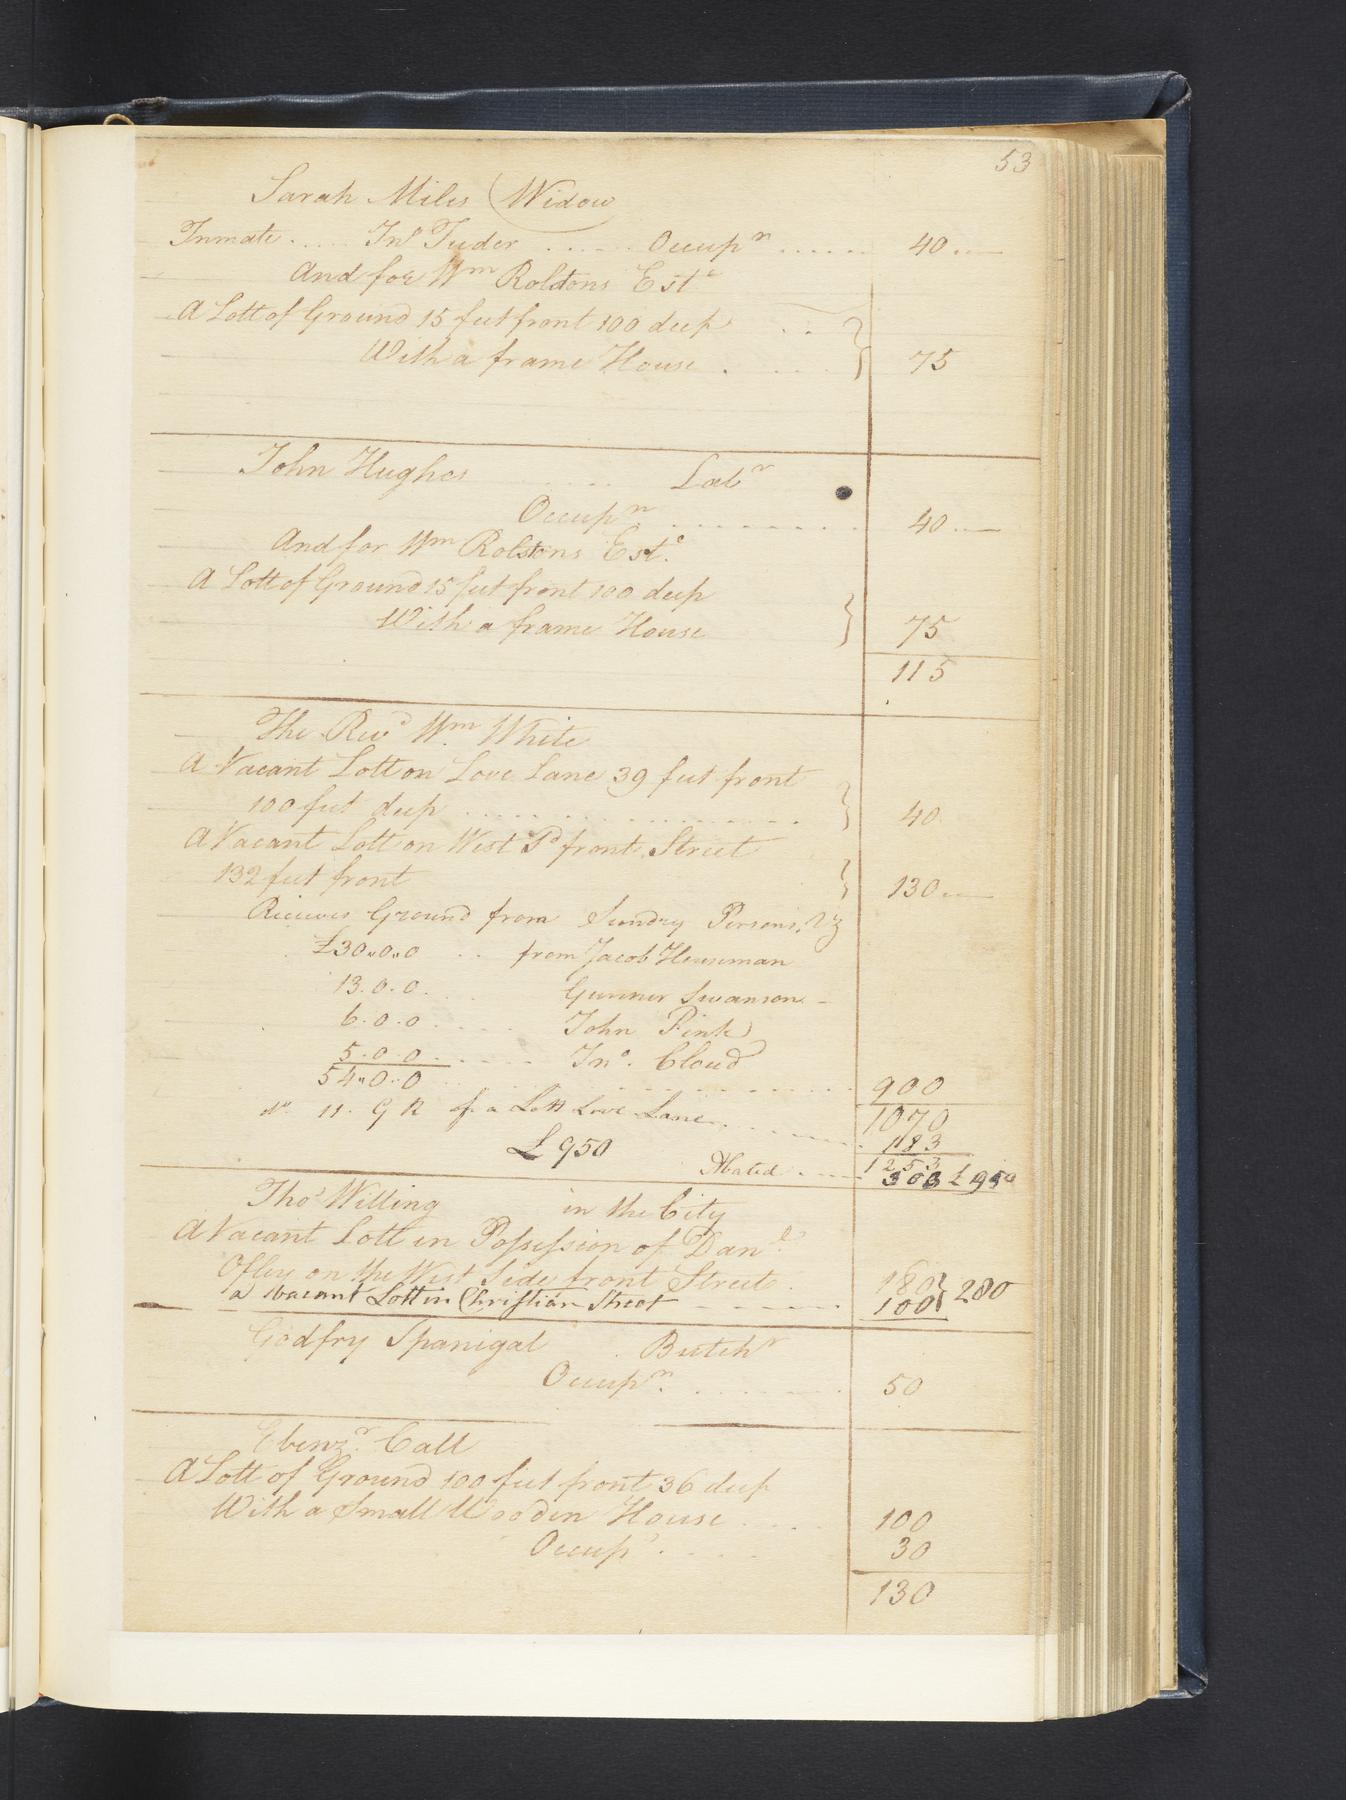 53
Sarah Miles (Widow
Inmate ..... Jno Tuder ...... Occupn ...... 40 ..—
And for Wm Rolstons Este
A Lott of Ground 15 feet front 100 deep . . }
With a frame House . .... } 75
John Hughes ..... Labr
Occupn ......... 40 ..—
And for Wm Rolstons Este.
A Lott of Ground 15 feet front 100 deep }
With a frame House } 75
115
The Revd Wm. White
A Vacant Lott on Love Lane 39 feet front }
100 feet deep .................. } 40
A Vacant Lott on West Sd front Street }
132 feet front } 130 ..—
Recieves Ground from Sundry Persons. Vz
£30..0..0 .. from Jacob Heusman
13.0.0. .. Gunner Swanson. –
6.0.0 ..... John Pink
5.0.0 ...... Jno. Cloud
54..0..0 .................. 900
11. G R of a Lott Love Lane ....... 1070
183
£ 950
Abated .... 1253
303 £ 950
Thos Willing in the City
A Vacant Lott in Possession of Danl.
Offley on the West Side front Street . 180 } 280
a Vacant Lott in Christian Street - - - - - 100
Godfry Spanigal . Butchr
Occupn. ........ 50
Ebenzr. Call
A Lott of Ground 100 feet front 36 deep
With a Small Wooden House .... 100
Occup ..... 30
130